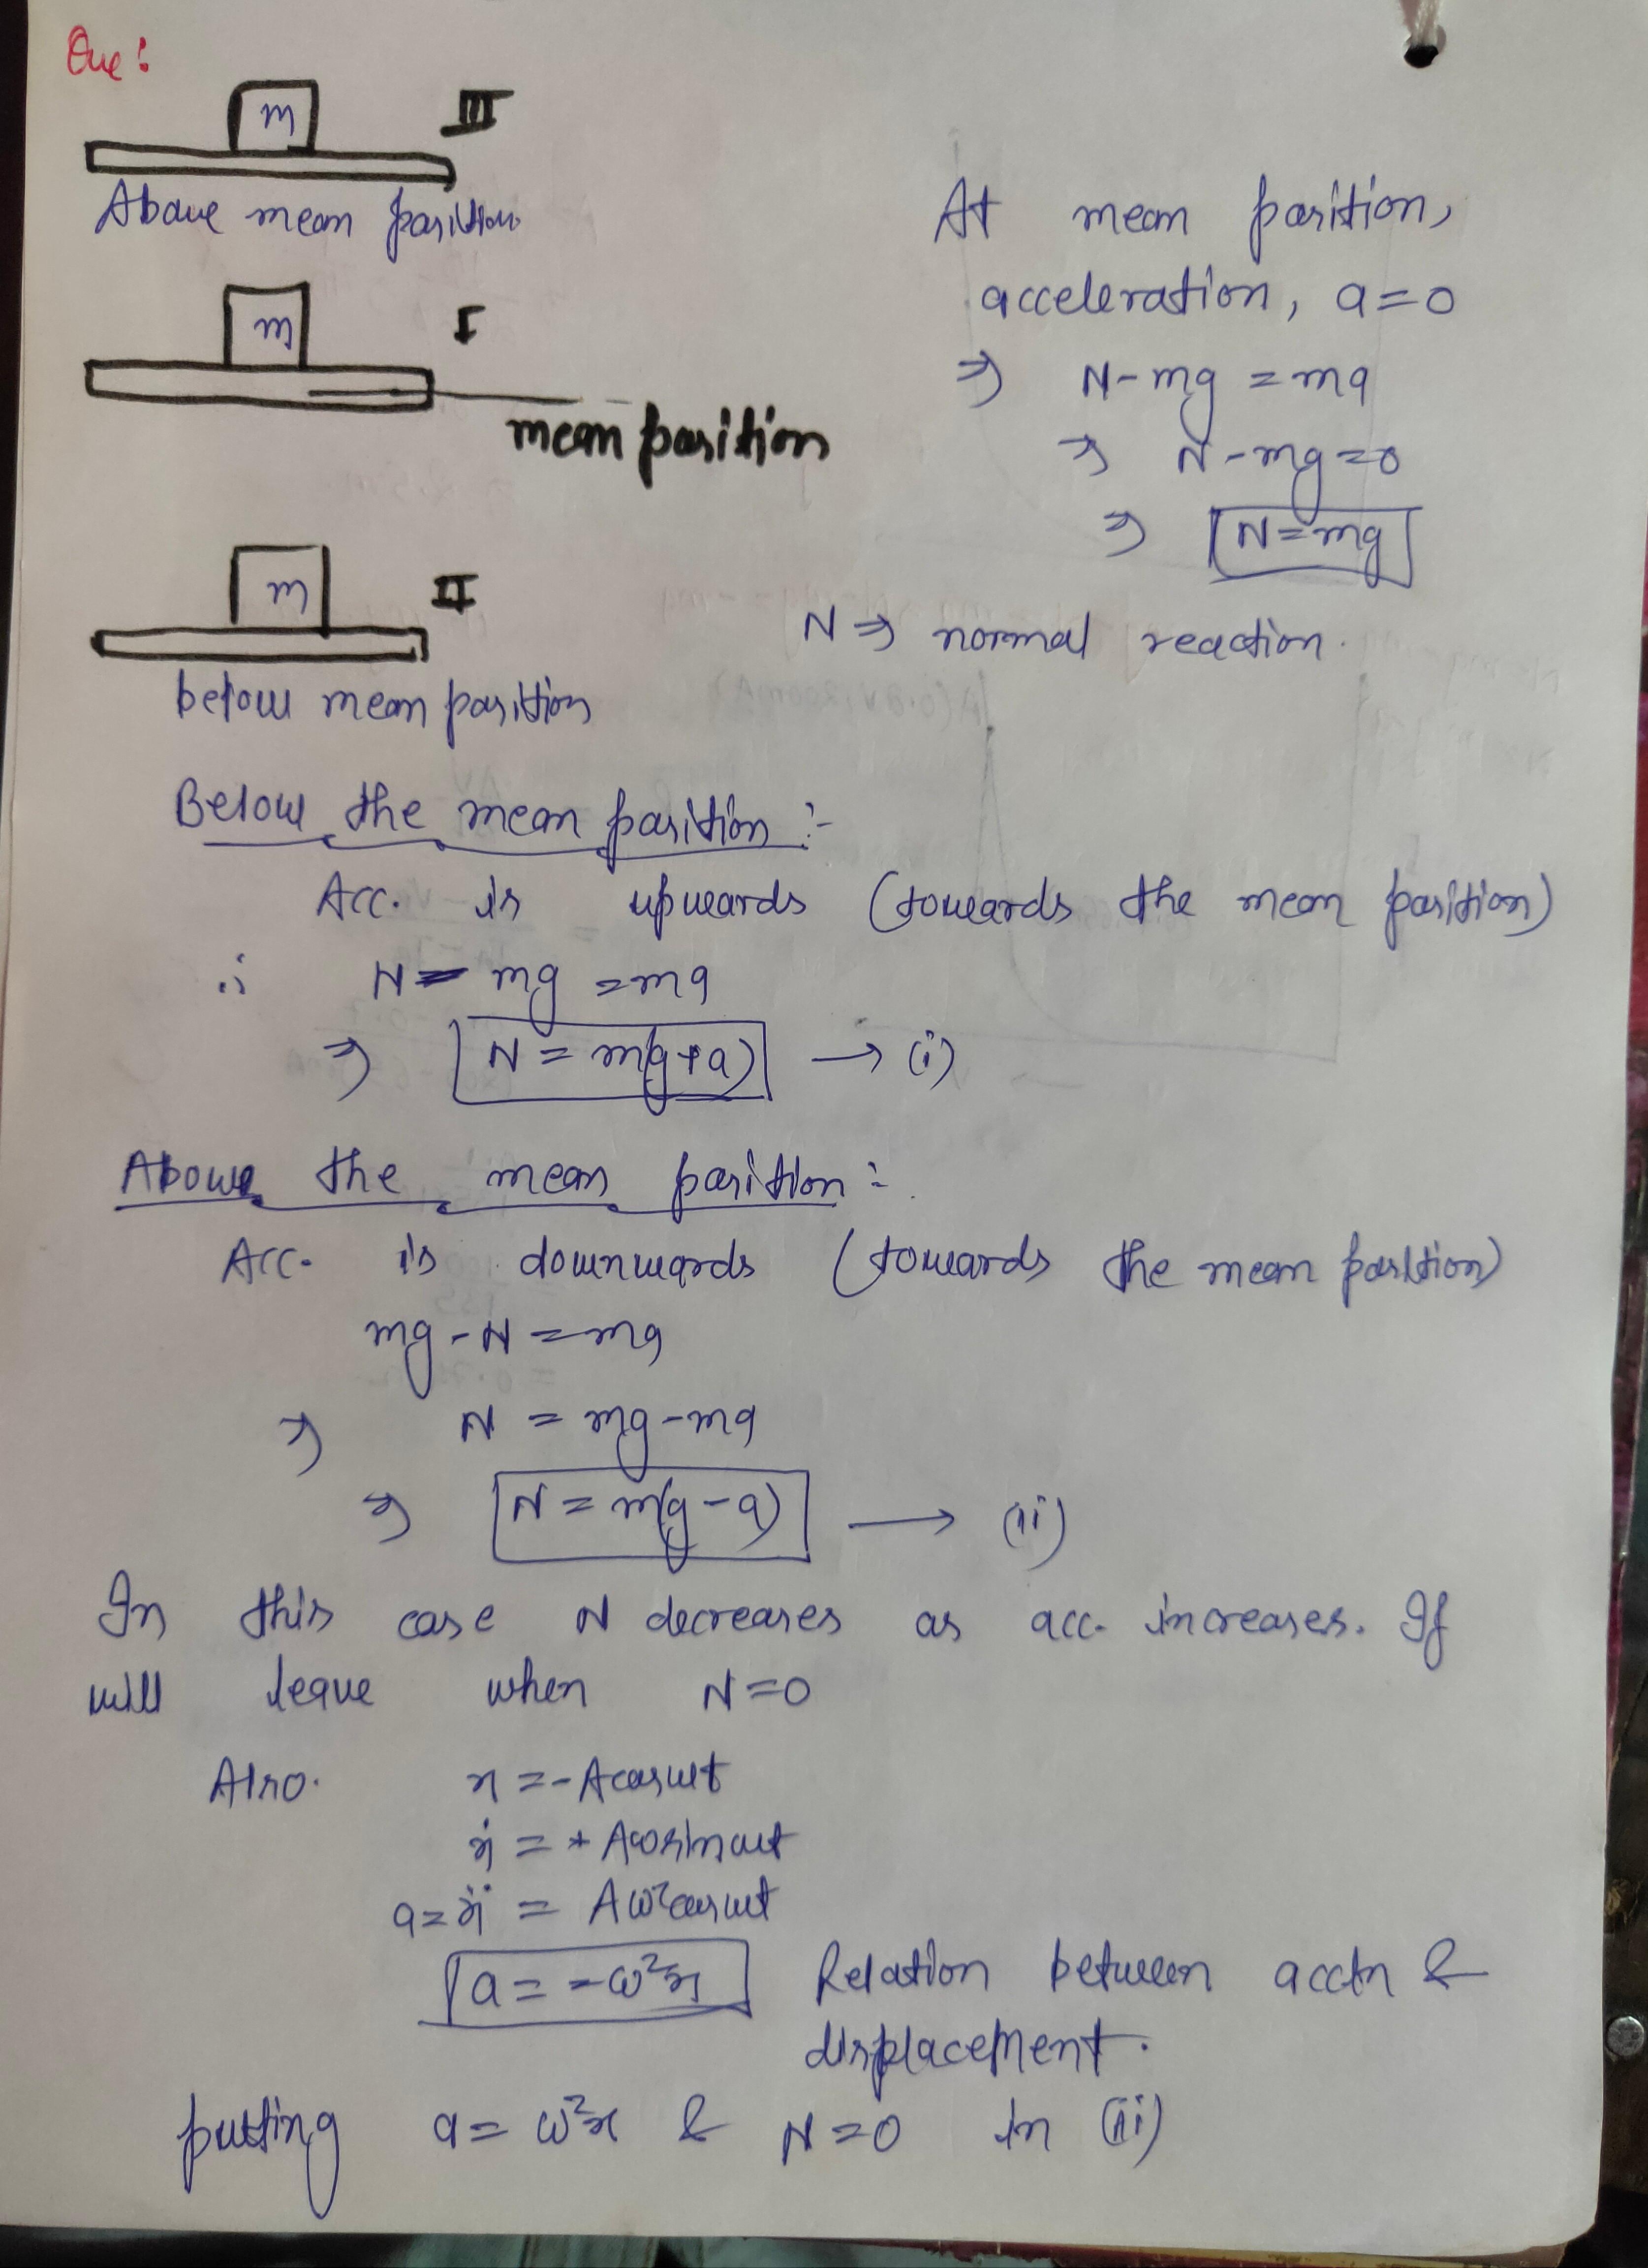 Que:
m III
Above mean position
m I
mean position
m II
below mean position
At mean position,
acceleration, a=0
⇒ N-mg = ma
⇒ N-mg=0
⇒ N=mg
N ⇒ normal reaction.
Below the mean position :-
Acc. is upwards (towards the mean position)
∴ N - mg = ma
⇒ N = m(g+a) → (i)
Above the mean position :
Acc. is downwards (towards the mean position)
mg-N = ma
⇒ N = mg-ma
⇒ N = m(g-a) → (ii)
In this case N decreases as acc. increases. If
will leave when N=0
Also. x = -Acosωt
ẋ = + Aωsinωt
a=ẍ = Aω²cosωt
a = -ω²x Relation between acctn &
displacement.
putting a= ω²x & N=0 in (ii)